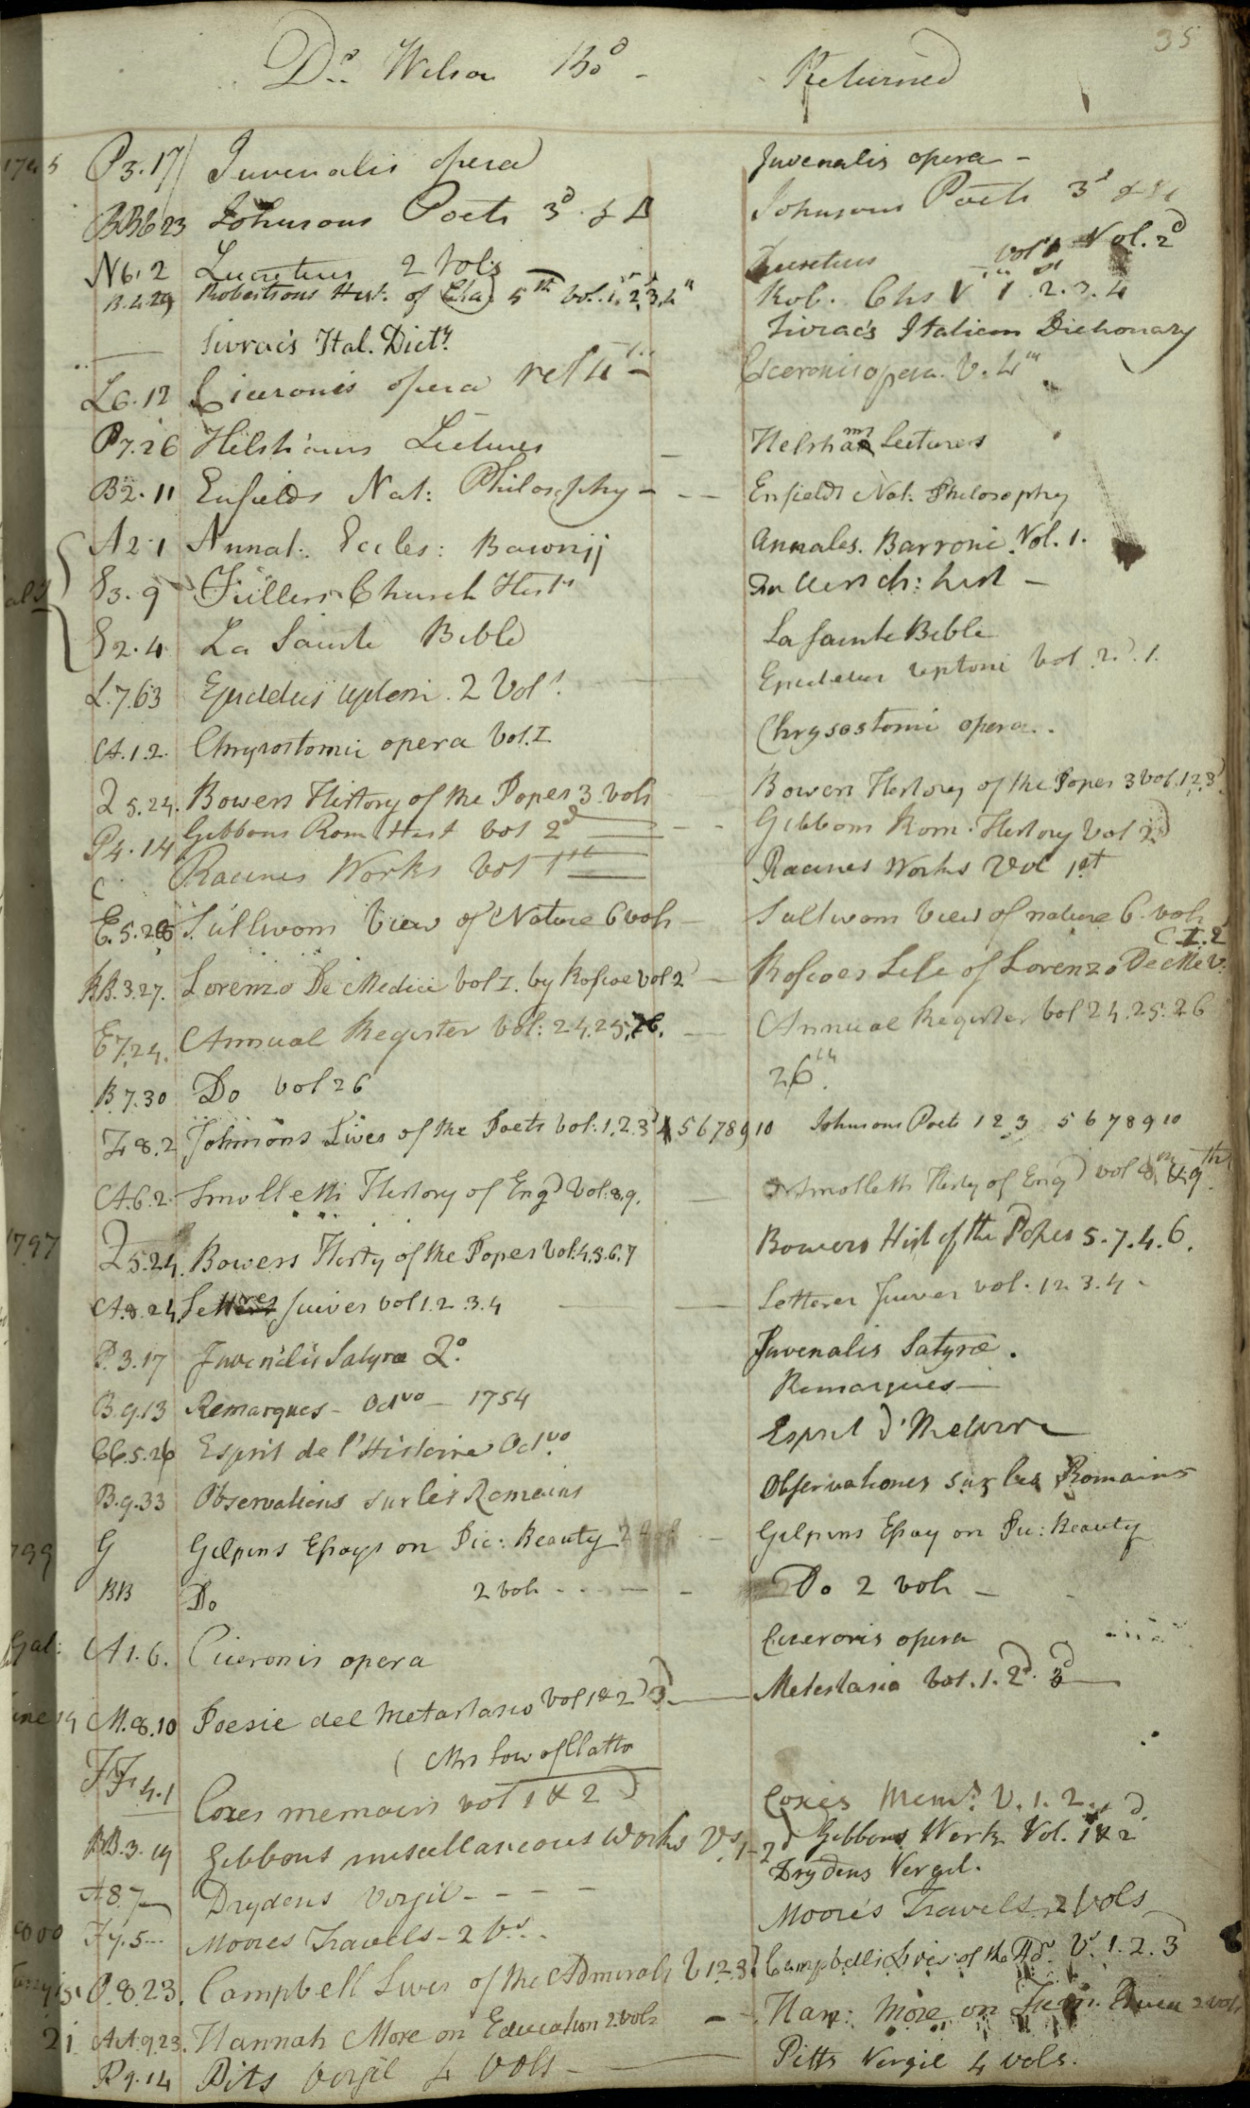 35
Dr. Wilson Bo.d - Returned
P3.17 Juvenalis opera Juvenalis opera -
BB623 Johnsons Poets 3d & Johnsons Poets 3d &
N6.2 Lucretius 2 Vols Lucretius Vol. 2d
B.4.29 Robertsons Hist. of Cha) 5th Vol. 1. 2. 3. 4 Rob. Chs V 1. 2. 3. 4
Sivrac's Ital. Dicty. Sivrac's Italian Dictionary
L6.12 Ciceronis opera Ciceronis opera. V. 4
P7.26 Helshams Lectures Helsham Lectures
B2.11 Enfields Nat: Philosophy - - - Enfields Nat. Philosophy
A2.1 Annal. Eccles: Baronij Annales. Barroni. Vol. 1.
E3.9 Fullers Church Hist. Fullers ch: hist -
E2.4 La Sainte Bible La Sainte Bible
L.7.63 Epictetus Uptoni. 2 Vol Epictetus Uptoni Vol. 2. 1.
A.1.2. Chrysostomi opera Vol. I Chrysostomi opera..
Q5.24. Bowers History of the Popes 3 Vols Bowers History of the Popes 3 Vol. 1.2.3
P4.14 Gibbons Rom Hist Vol 2d Gibbons Rom. History Vol 2d
C Racines Works Vol 1st Racines Works Vol 1st
E.5.28 Sullivans View of Nature 6 vols Sullivans View of nature 6. vols
BB.3.27. Lorenzo De Medici Vol I. by Roscoe Vol 2 Roscoes Life of Lorenzo De Me
E7.24. Annual Register Vol: 24.25.26. Annual Register Vol 24.25.26
B.7.30 Do Vol 26 26th.
F8.2 Johnsons Lives of the Poets Vol. 1.2.3 4 5 6 7 8 9 10 Johnsons Poets 1 2 3 5 6 7 8 9 10
A.6.2. Smolletts History of Engd Vol: 8.9. Smolletts Histy of Engd Vol 8th & 9th
1797 Q5.24. Bowers Histy of the Popes Vol. 4.5.6.7 Bowers Hist of the Popes 5.7.4.6.
A.8.24 Lettres Juives Vol 1.2.3.4 Letteres Juives vol. 1 2.3.4 -
P.3.17 Juvenalis Satyræ 2o. Juvenalis Satyræ.
B.9.13 Remarques - Octvo - 1754 Remarques -
CC.5.26 Esprit de l'Histoire Octvo Esprit d'
B.9.33 Observations sur les Romains Observationes sur les Romains
G Gilpins Essays on Pic: Beauty Gilpins Essay on Pic: Beauty
BB Do 2 vols - - - - Do 2 vols -
Gal: A1.6. Ciceronis opera Ciceronis opera
M.8.10 Poesie del Metastasio Vol 1 & 2d 3d Metestasio Vol. 1. 2d. 3d
( Mrs Low of Clatto
FF4.1 Coxes memoirs vol 1 & 2 ) Coxes Memrs. V. 1. 2.
BB.3.19 Gibbons miscellaneous works Vs. 1-2d Gibbons Work Vol. 1 & 2d
A8.7 Drydens Vergil - - - - Drydens Vergil.
F7.5 Moores Travels - 2 Vs. Moore's Travels 2 Vols
P.8.23. Campbell Lives of the Admirals V 1 2.3 Campbells Lives of the Adl V. 1. 2. 3
21 AA.9.23. Hannah More on Education 2 vols Han: More on 2 vols
P9.14 Pits Vergil 4 Vols - Pitts Vergil 4 vols.